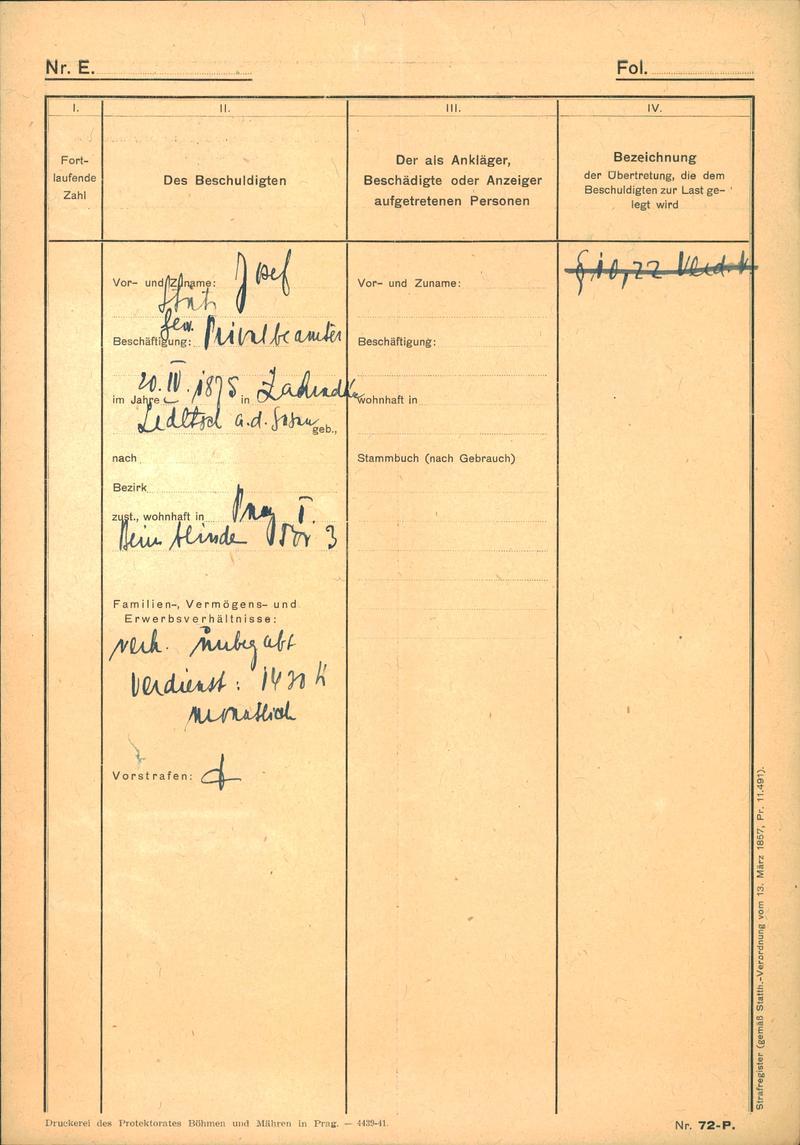 Nr. E.
Fol.
I.
II.
III.
IV.
Fort-
laufende
Zahl
Des Beschuldigten
Der als Ankläger,
Beschädigte oder Anzeiger
aufgetretenen Personen
Bezeichnung
der Übertretung, die dem
Beschuldigten zur Last ge-
legt wird
Vor- und Zuname: Josef
gew.
Beschäftigung: Privatbeamter
20. IV. 1875
im Jahre in
a.d. geb.,
nach
Bezirk
zust., wohnhaft in Prag I.
Beim 3
Familien-, Vermögens- und
Erwerbsverhältnisse:
verh.
Verdienst: 1430 K
monatlich
Vorstrafen:
Vor- und Zuname:
Beschäftigung:
wohnhaft in
Stammbuch (nach Gebrauch)
§ 10, 22
Strafregister (gemäß Statth.-Verordnung vom 13. März 1857, Pr. 11.491).
Druckerei des Protektorates Böhmen und Mähren in Prag. — 4439-41.
Nr. 72-P.